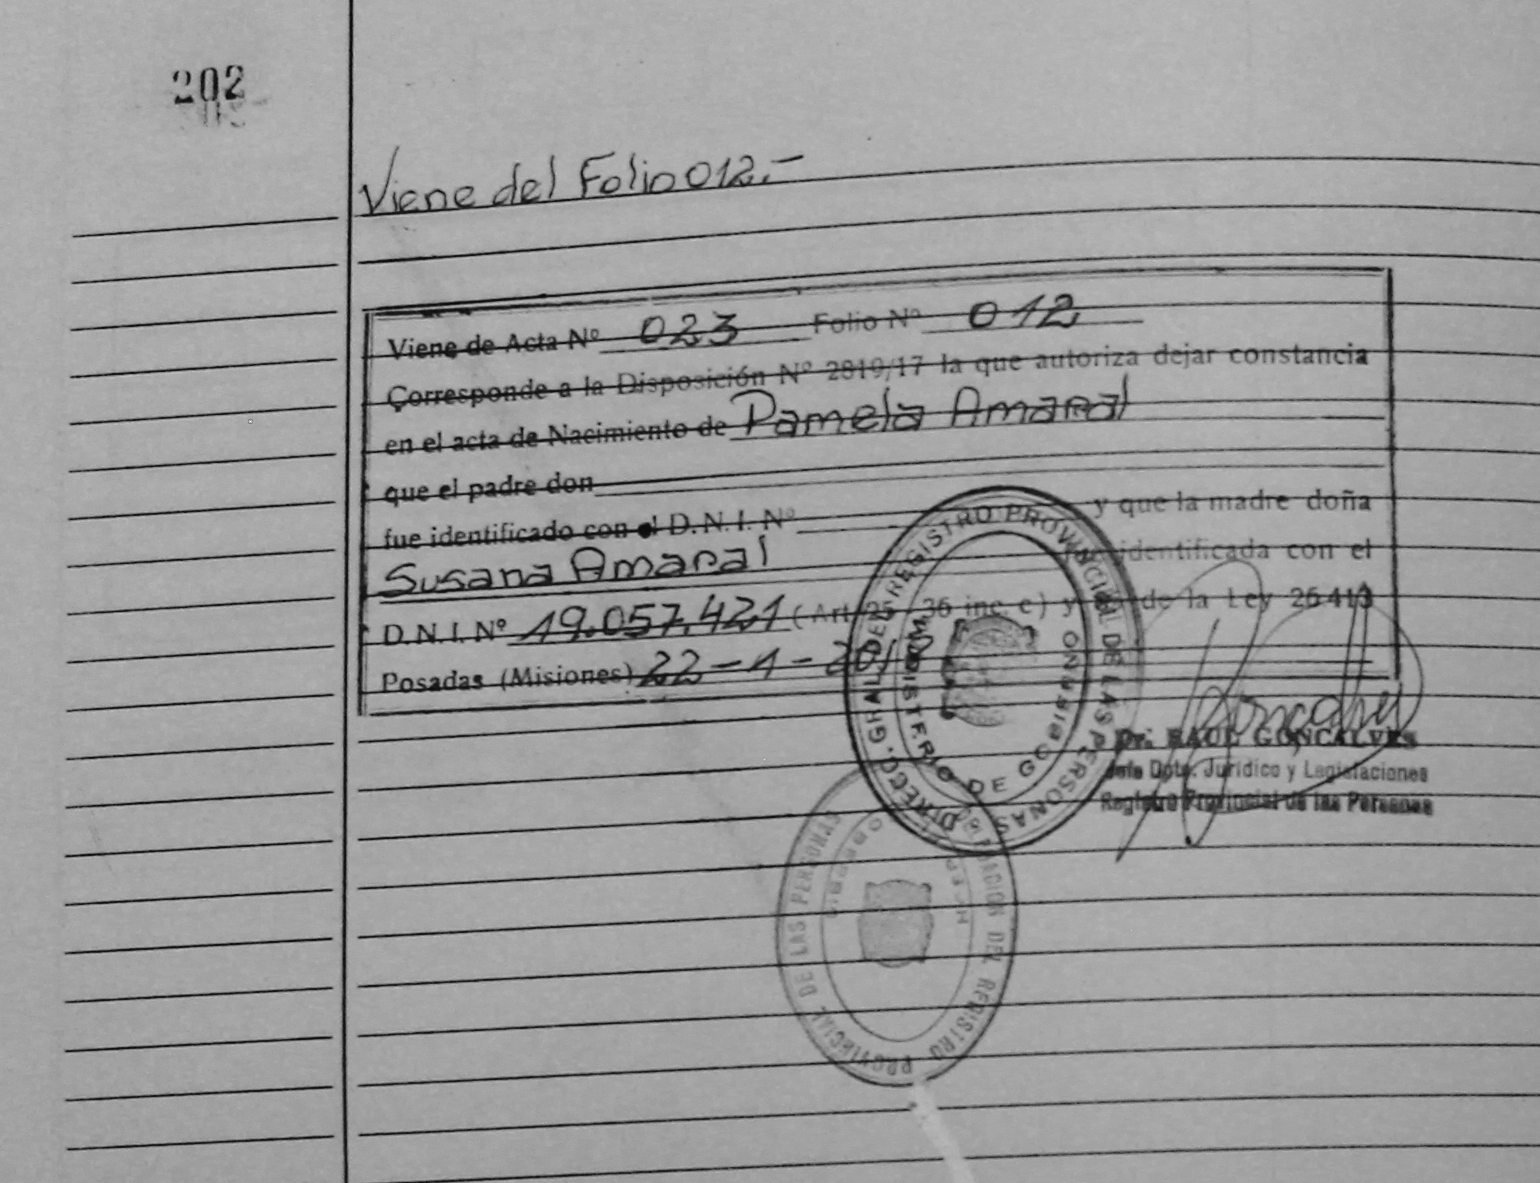 202
Viene del Folio 012.-
Viene de Acta Nº 023 Folio Nº 012
Corresponde a la Disposición Nº 2819/17 la que autoriza dejar constancia
en el acta de Nacimiento de Pamela Amaral
que el padre don
fue identificado con el D.N.I. Nº y que la madre doña
Susana Amaral fue identificada con el
D.N.I. Nº 19.057.421 (Art. 25 - 36 inc. c) y de la Ley 26413
Posadas (Misiones) 22-1-20
DIRECC. GRAL. DEL REGISTRO PROVINCIAL DE LAS PERSONAS
MINISTERIO DE GOBIERNO
Dr. RAUL GONCALVES
Jefe Dpto. Jurídico y Legislaciones
Registro Provincial de las Personas
DEL REGISTRO PROVINCIAL DE LAS PERSONAS